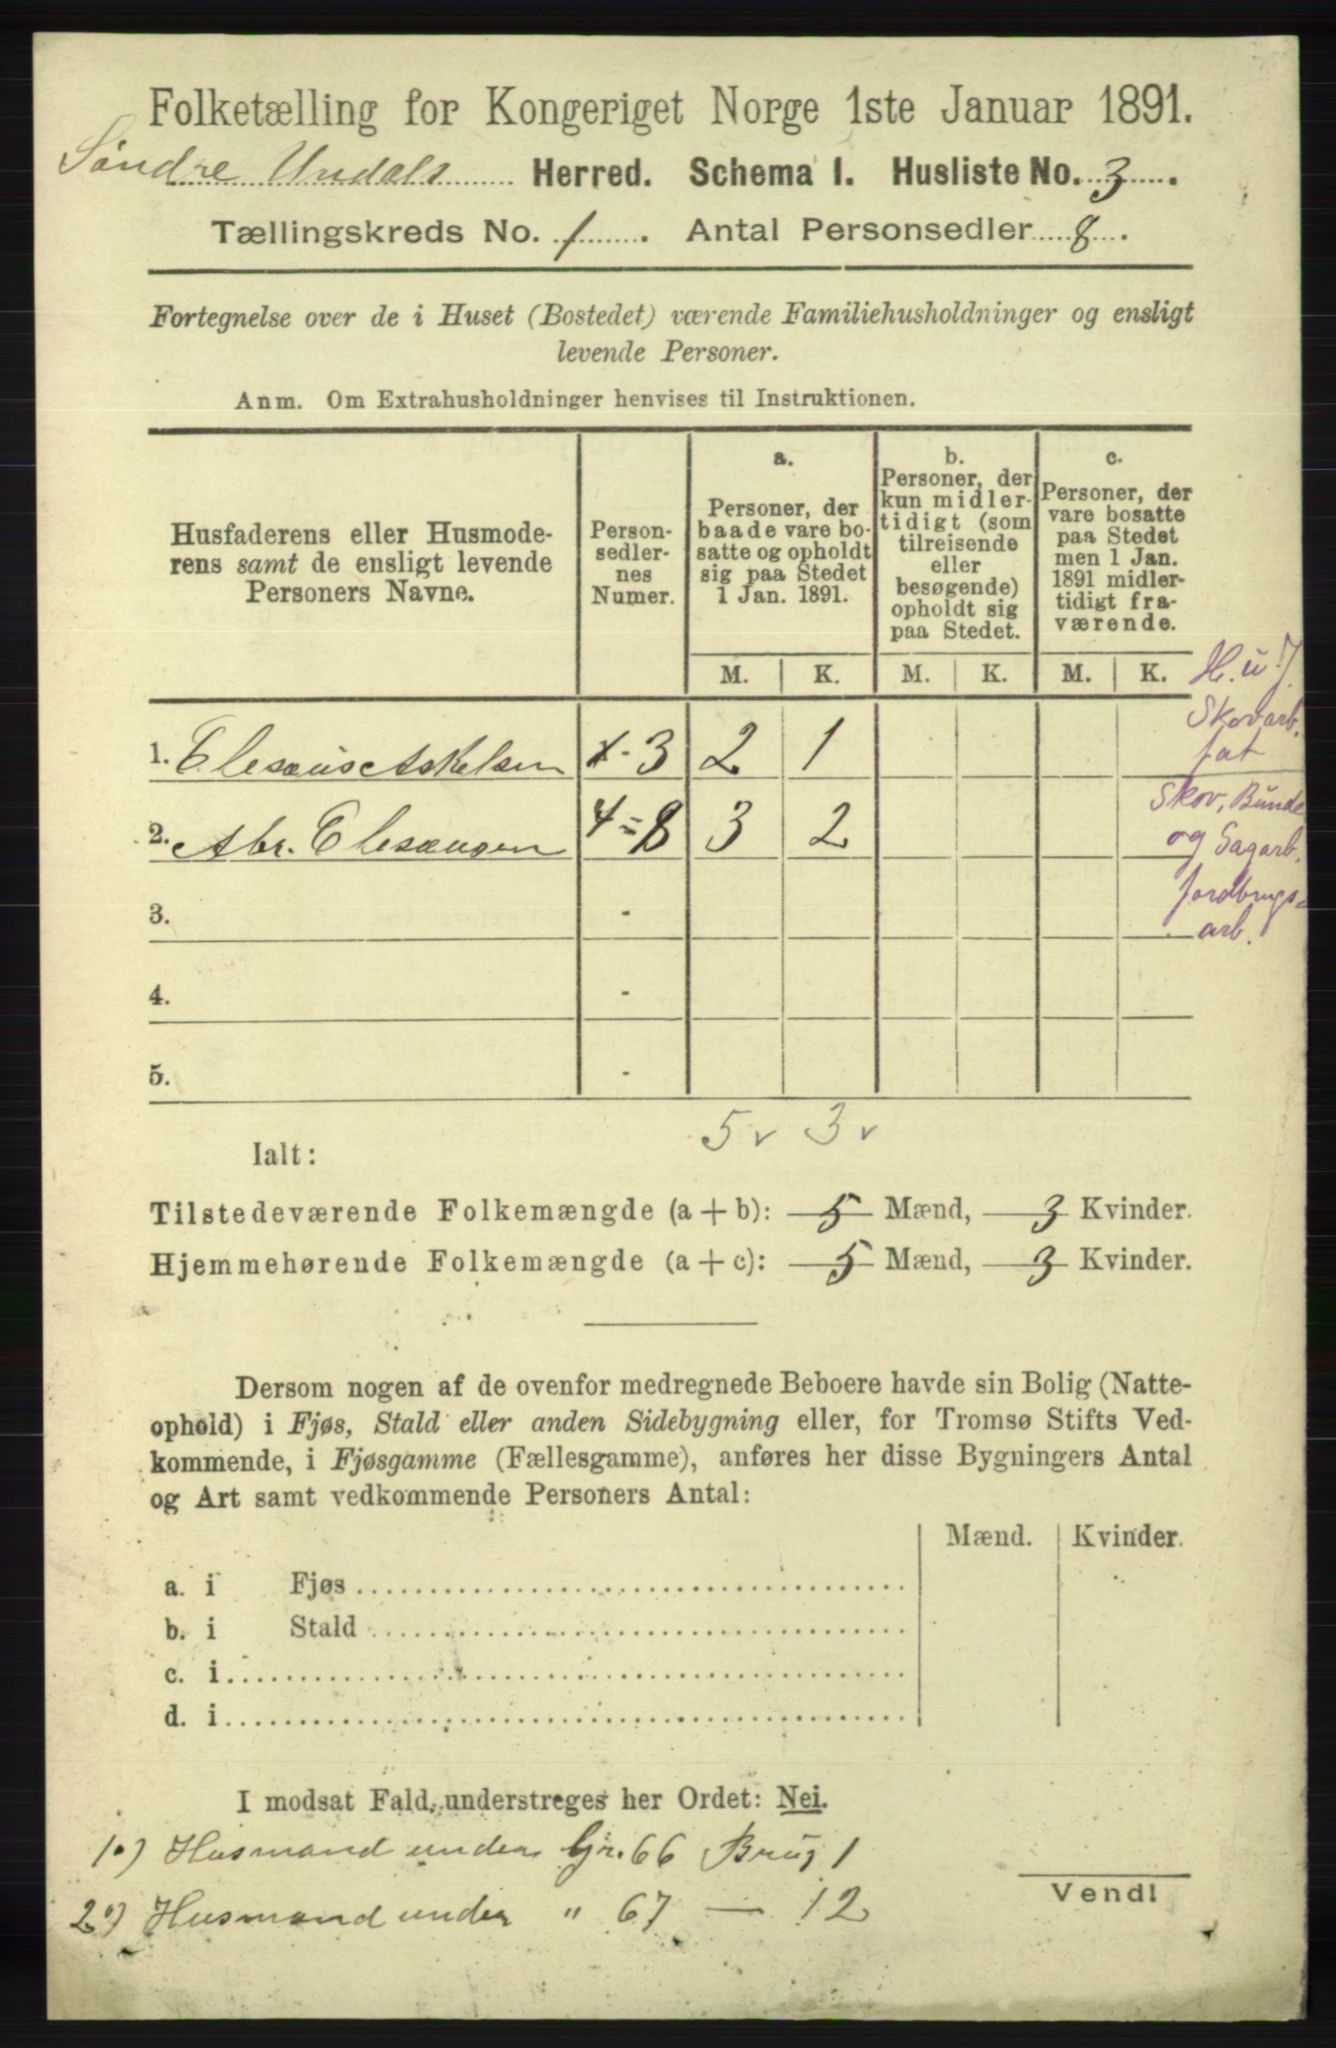 Folketælling for Kongeriget Norge 1ste Januar 1891.
Söndre Undals Herred. Schema I. Husliste No. 3.
Tællingskreds No. 1. Antal Personsedler 8.
Fortegnelse over de i Huset (Bostedet) værende Familiehusholdninger og ensligt
levende Personer.
Anm. Om Extrahusholdninger henvises til Instruktionen.
Husfaderens eller Husmode-
rens samt de ensligt levende
Personers Navne.
Person-
sedler-
nes
Numer.
a.
Personer, der
baade vare bo-
satte og opholdt
sig paa Stedet
1 Jan. 1891.
b.
Personer, der
kun midler-
tidigt (som
tilreisende
eller
besøgende)
opholdt sig
paa Stedet.
c.
Personer, der
vare bosatte
paa Stedet
men 1 Jan.
1891 midler-
tidigt fra-
værende.
M. K. M. K. M. K.
H. u J.
Skovarb.
fat
1. Elesæus Askelsen 1-3 2 1
Skov, Bunde
og Sagarb.
2. Abr. Elesæusen 4=8 3 2
Jordbrugs=
arb.
3. -
4. -
5. -
5 v 3 v
Ialt:
Tilstedeværende Folkemængde (a + b): 5 Mænd, 3 Kvinder.
Hjemmehørende Folkemængde (a + c): 5 Mænd, 3 Kvinder.
Dersom nogen af de ovenfor medregnede Beboere havde sin Bolig (Natte-
ophold) i Fjøs, Stald eller anden Sidebygning eller, for Tromsø Stifts Ved-
kommende, i Fjøsgamme (Fællesgamme), anføres her disse Bygningers Antal
og Art samt vedkommende Personers Antal:
Mænd. Kvinder.
a. i Fjøs
b. i Stald
c. i
d. i
I modsat Fald understreges her Ordet: Nei.
1o) Husmand under Gr. 66 Brug 1
2o) Husmand under " 67 — 12
Vend!